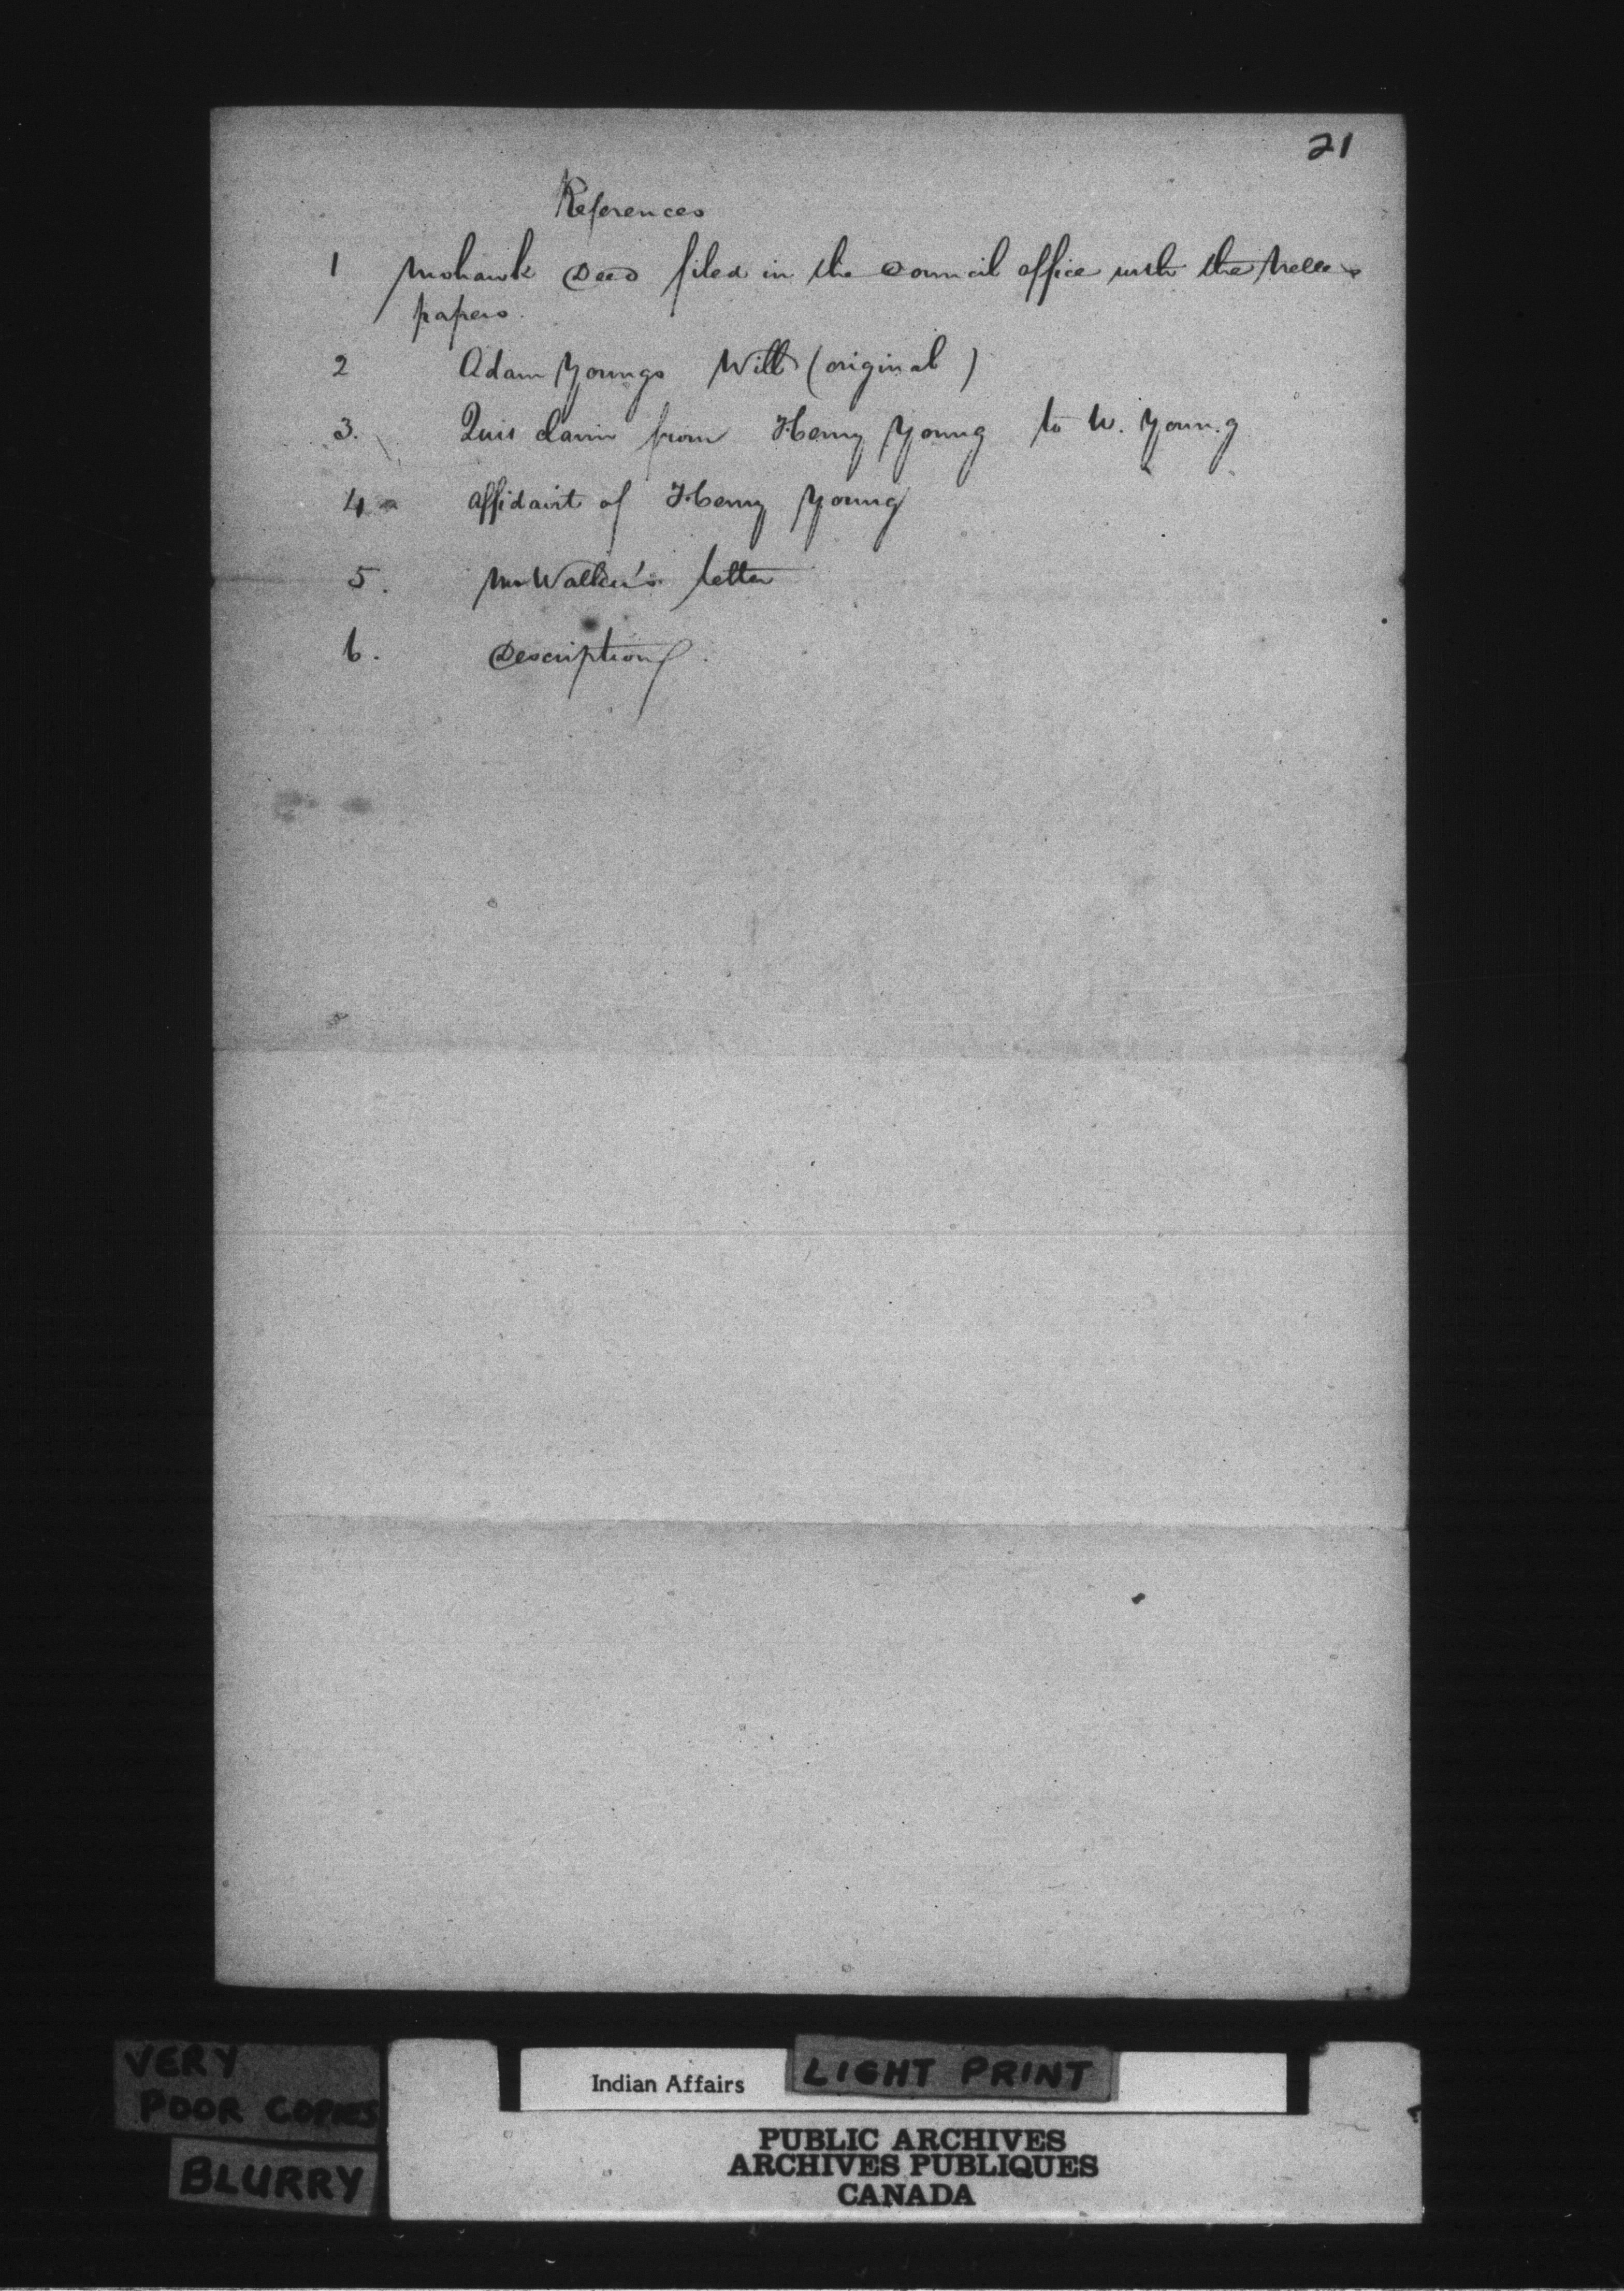 21
References
1 Mohawk Deed filed in the Council office with the Nelles
papers.
2 Adam Youngs Will (original)
3. Quit claim from Henry Young to W. Young
4 Affidavit of Henry Young
5. Mr Walker's letter
6. Description
VERY
POOR COPIES
BLURRY
Indian Affairs
LIGHT PRINT
PUBLIC ARCHIVES
ARCHIVES PUBLIQUES
CANADA